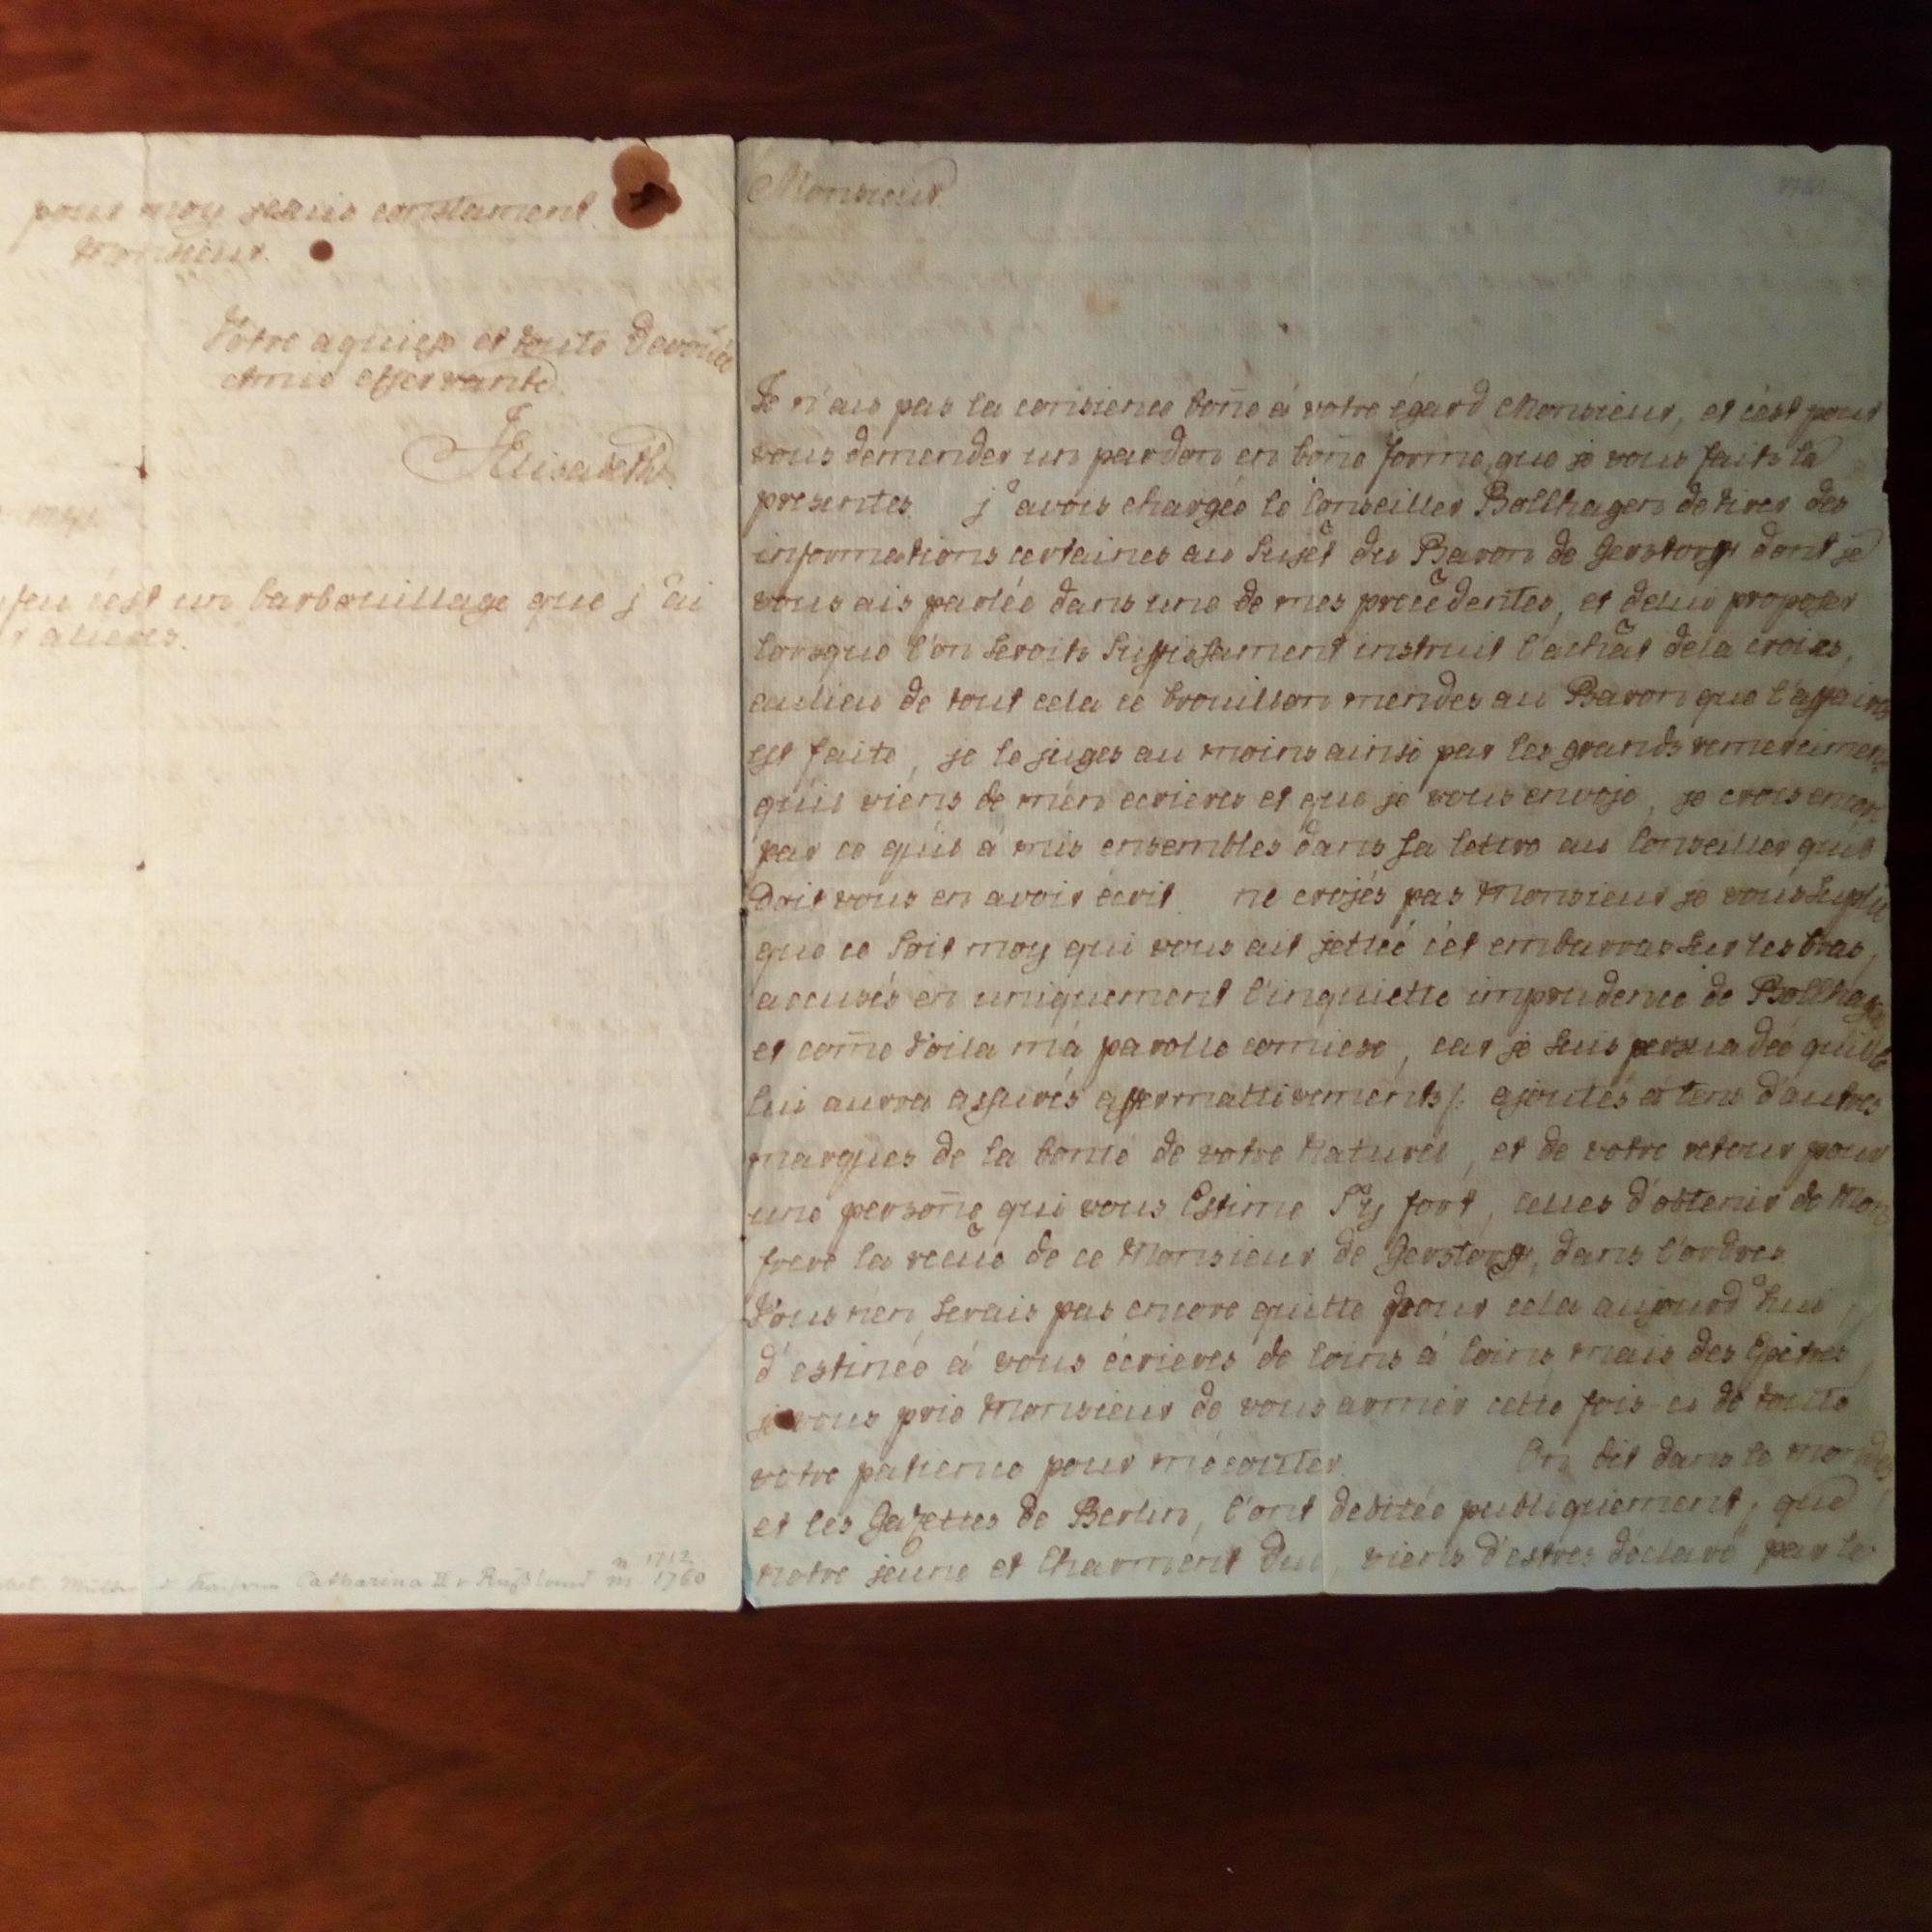 pour moy je suis constament
Monsieur.
Votre aquise et toute Devouée
Amie et servante
JElisabeth
feu c'est un barbouillage que j'ai
Catharina II v Rußland
n 1712
m 1760
Monsieur
Je n'ais pas la consience boñe á votre égard Monsieur, et c'est pour
vous demender un pardon en boñe forme, que je vous faits la
presentes. j'avois chargée le Conseiller Bollhagen de tirer des
informations certaines au Sujet du Baron de Gerstorff dont je
vous ais parlée dans une de mes precedentes, et de lui proposer
lorsque l'on Seroits Suffissament instruit l'achât de la croix,
au lieu de tout cela ce brouillon mendes au Baron que l'affaires
est faite, je le juges au moins ainsi par les grands remercimen
quil viens de m'en ecrieres et que je vous envoje, je crois encor
par ce quil á mis ensembles dans sa lettre au Conseiller quil
Doit vous en avoir écrit. ne crojés pas Monsieur je vous Suplie
que ce Soit moy qui vous ait jettée cet embarras Sur les bras,
accusés en uniquement l'inquiette imprudence de Bollhagen
et coñe Voila má parolle comise, car je Suis persuadée quil le
lui aurra assurés affermattivements/: ajoutés á tens d'autres
marques de la bonté de votre Naturel, et de votre retour pour
une persoñe qui vous Estime Sy fort, celles d'obtenir de Mon
frere la recue de ce Monsieur de Gerstorff, dans l'ordres
Vous n'en Serais pas encore quitte pour cela aujourd'hui,
d'estinée á vous écrieres de loins á loins mais des Epitres,
je vous prie Monsieur de vous armér cette fois-ci de toute
votre patience pour m'écouter. On dit dans le mondes
et les Gazettes de Berlin, l'ont debitée publiquement, que
notre jeune et Charmént Duc, viens d'estres déclaré par le